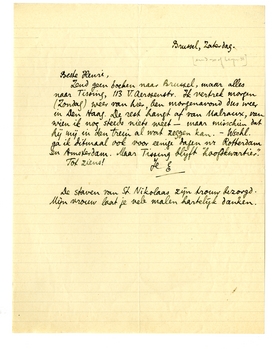 Brussel, Zaterdag.
Beste Henri,
Zend geen boeken naar Brussel, maar alles
naar Tissing, 113 V. Aerssenstr. Ik vertrek morgen
(Zondag) weer van hier, ben morgenavond dus weer
in Den Haag. De rest hangt af van Malraux, van
wien ik nog steeds niets weet — maar misschien dat
hij mij in den trein al wat zeggen kan. —
ga ik ditmaal ook voor eenige dagen nr Rotterdam
en Amsterdam. Maar Tissing blijft "hoofdkwartier".
Tot ziens!
Je E
De staven van St. Nikolaas zijn trouw bezorgd.
Mijn vrouw laat je vele malen hartelijk danken.